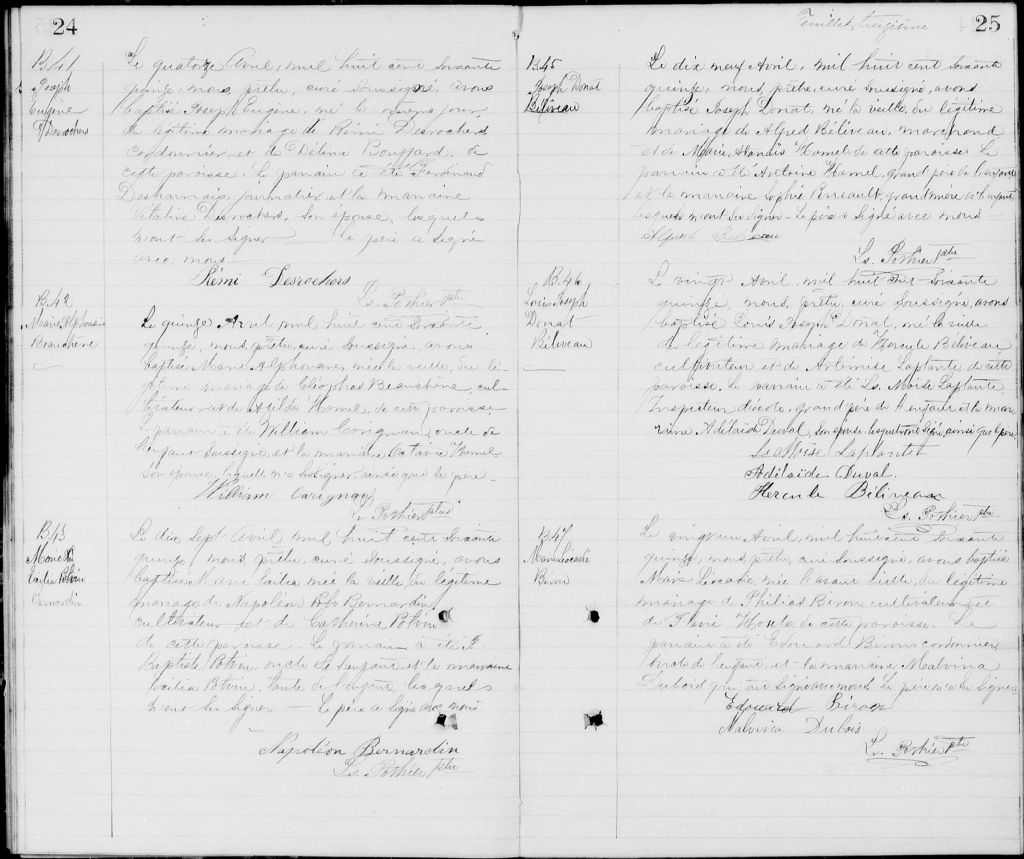 24
B.41
Joseph
Eugène
Desrochers
Le quatorze Avril, mil huit cent soixante
quinze, nous, prêtre, curé soussigné, avons
baptisé Joseph Eugène, né le même jour,
du légitime mariage de Rémi Desrochers,
cordonnier, et de Délina Bouffard, de
cette paroisse. Le parrain a été Ferdinand
Desharnais, journalier, et la marraine
Vitaline Desrochers, son épouse, lesquels
n'ont su signer le père a signé
avec nous.
Rémi Desrochers
Ls. Pothier ptre
B.42
Marie Alphonsine
Beauchêne
Le quinze Avril mil huit cent soixante
quinze, nous, prêtre, curé soussigné, avons
baptisé Marie Alphonsine, née la veille, du lé-
gitime mariage de Cléophas Beauchêne cul-
tivateur et de Hamel, de cette paroisse
Le parrain a été William Carignan, oncle de
l'enfant soussigné, et la marraine Octavie Hamel,
son épouse, laquelle n'a su signer, ainsi que le père.
William Carignan
Ls. Pothier ptre
B.43
Marie
Potvin
Bernardin
Le dix sept Avril, mil huit cent soixante
quinze, nous, prêtre, curé soussigné, avons
baptisé Marie née la veille, du légitime
mariage de Napoléon Bernardin,
cultivateur et de Catherine Potvin
de cette paroisse. Le parrain a été
Baptiste Potvin, oncle de l'enfant, et la marraine
Potvin, tante de l'enfant, lesquels
n'ont su signer — Le père a signé avec nous.
Napoléon Bernardin
Ls. Pothier ptre
Feuillet treizième
25
B.45
Joseph Donat
Béliveau
Le dix neuf Avril, mil huit cent soixante
quinze, nous, prêtre, curé soussigné, avons
baptisé Joseph Donat, né la veille, du légitime
mariage de Alfred Béliveau, marchand
et de Marie Hamel de cette paroisse. Le
parrain a été Antoine Hamel, grand père de l'enfant
et la marraine Sophie grand'mère de l'enfant
lesquels n'ont su signer — Le père a signé avec nous —
Alfred Béliveau
Ls. Pothier ptre
B.46
Louis Joseph
Donat
Béliveau
Le vingt Avril, mil huit cent soixante
quinze, nous, prêtre, curé soussigné, avons
baptisé Louis Joseph Donat, né la veille
du légitime mariage de Hercule Béliveau,
cultivateur et de Artémise Laplante, de cette
paroisse. Le parrain a été Ls. Moïse Laplante,
Inspecteur d'école, grand père de l'enfant et la mar-
raine Adélaïde Duval, son épouse lesquels ont signé, ainsi que le père.
Ls Moïse Laplante
Adélaïde Duval.
Hercule Béliveau
Ls. Pothier ptre
B.47
Biron
Le vingt un Avril, mil huit cent soixante
quinze, nous, prêtre, curé soussigné, avons baptisé
Marie née l'avant veille, du légitime
mariage de Philias Biron, cultivateur et
de Houle, de cette paroisse. Le
parrain a été Edouard Biron, cordonnier,
oncle de l'enfant, et la marraine Malvina
Dubois qui ont signé avec nous. Le père n'a su signer
Edouard Biron
Malvina Dubois
Ls. Pothier ptre